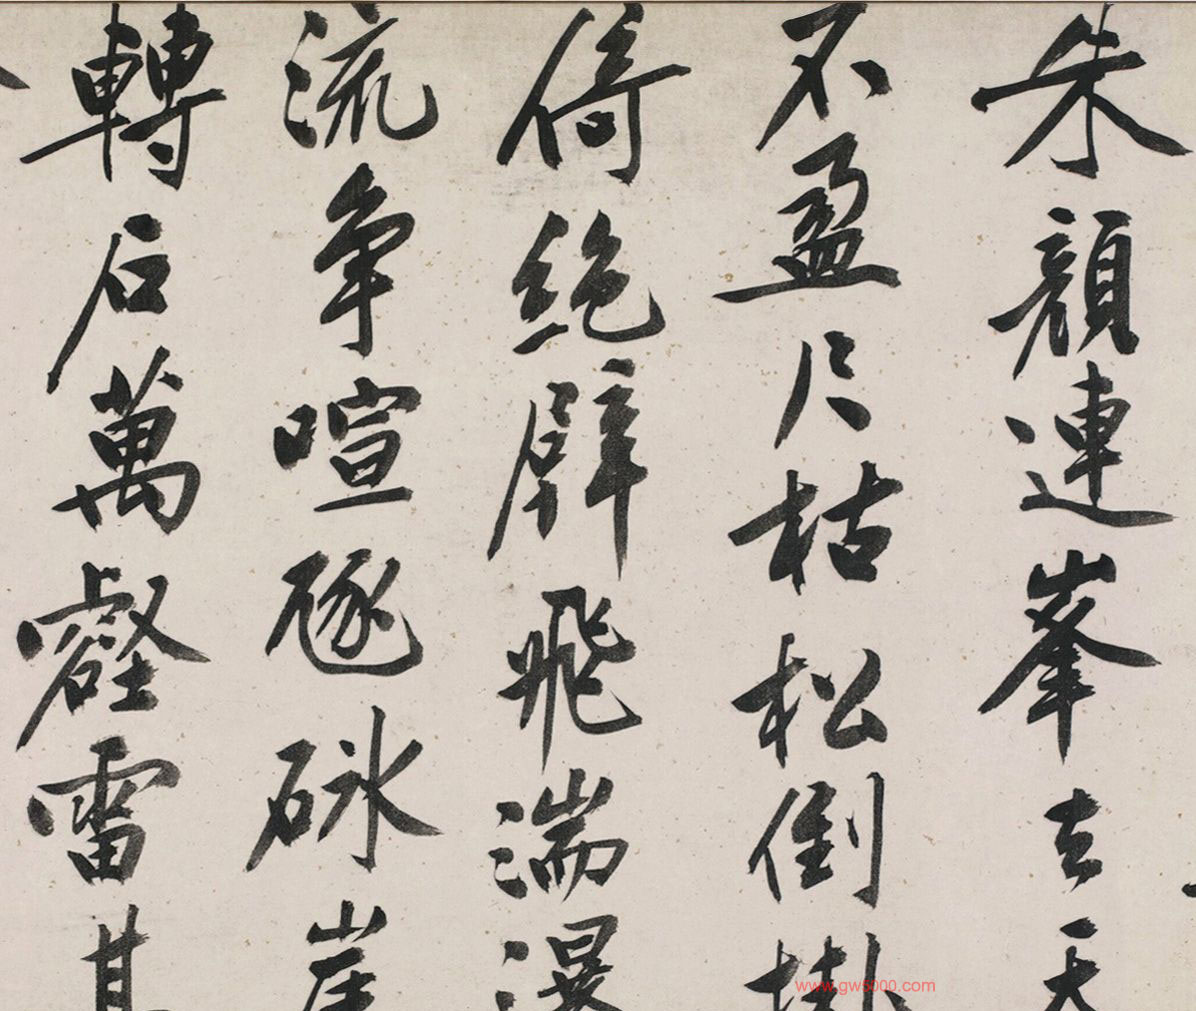 朱顔連峯去天
不盈尺枯松倒掛
倚絶壁飛湍瀑
流争喧豗砯崖
轉石萬壑雷其
www.gw5000.com